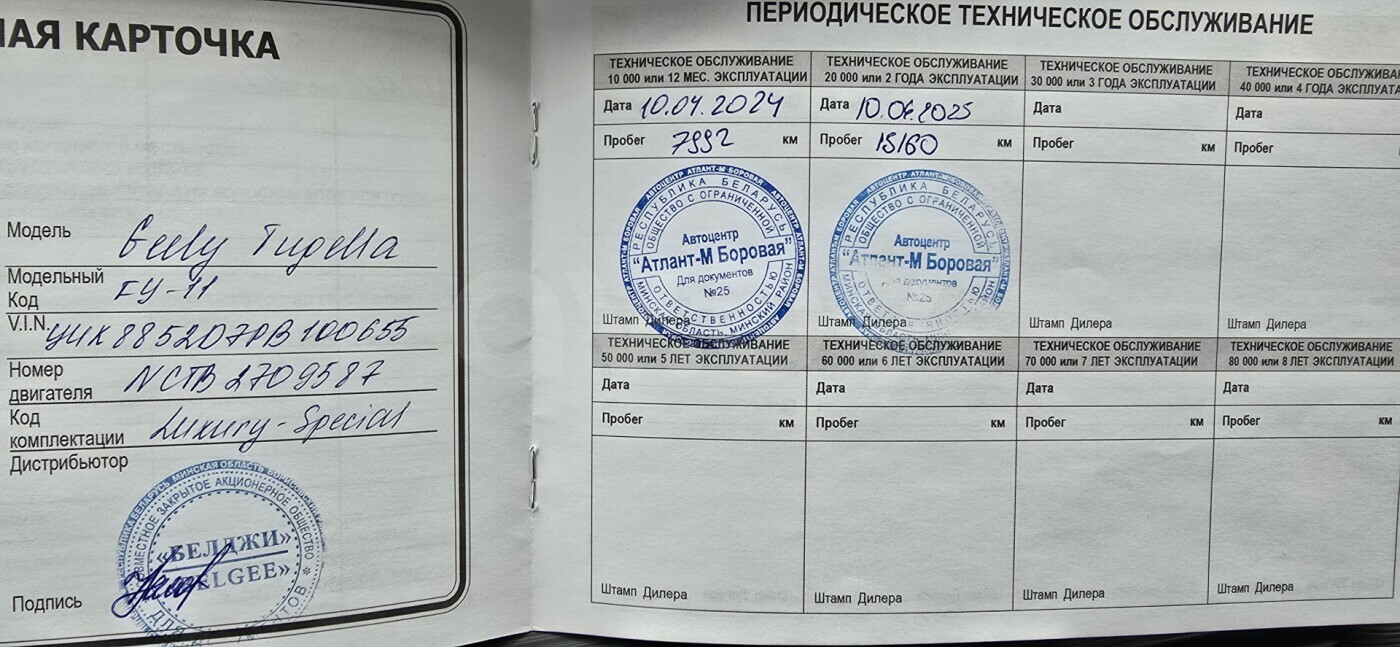 НАЯ КАРТОЧКА
Модель Geely Tugella
Модельный
Код FY-11
V.I.N.
Номер
двигателя
Код
комплектации Luxury-Special
Дистрибьютор
МИНСКАЯ ОБЛАСТЬ
ЗАКРЫТОЕ АКЦИОНЕРНОЕ ОБЩЕСТВО
«БЕЛДЖИ»
Подпись
ПЕРИОДИЧЕСКОЕ ТЕХНИЧЕСКОЕ ОБСЛУЖИВАНИЕ
ТЕХНИЧЕСКОЕ ОБСЛУЖИВАНИЕ
10 000 или 12 МЕС. ЭКСПЛУАТАЦИИ
Дата 10.04.2024
Пробег 7992 км
АВТОЦЕНТР АТЛАНТ-М БОРОВАЯ
РЕСПУБЛИКА БЕЛАРУСЬ
ОБЩЕСТВО С ОГРАНИЧЕННОЙ
Автоцентр
"Атлант-М Боровая"
Для документов
№25
ОТВЕТСТВЕННОСТЬЮ
МИНСКАЯ ОБЛАСТЬ, МИНСКИЙ РАЙОН
Штамп Дилера
ТЕХНИЧЕСКОЕ ОБСЛУЖИВАНИЕ
20 000 или 2 ГОДА ЭКСПЛУАТАЦИИ
Дата 10.06.2025
Пробег 15160 км
РЕСПУБЛИКА БЕЛАРУСЬ
ОБЩЕСТВО С ОГРАНИЧЕННОЙ
Автоцентр
"Атлант-М Боровая"
Для документов
№25
Штамп Дилера
ТЕХНИЧЕСКОЕ ОБСЛУЖИВАНИЕ
30 000 или 3 ГОДА ЭКСПЛУАТАЦИИ
Дата
Пробег км
Штамп Дилера
ТЕХНИЧЕСКОЕ ОБСЛУЖИВАНИЕ
40 000 или 4 ГОДА ЭКСПЛУАТА
Дата
Пробег
Штамп Дилера
ТЕХНИЧЕСКОЕ ОБСЛУЖИВАНИЕ
50 000 или 5 ЛЕТ ЭКСПЛУАТАЦИИ
Дата
Пробег км
Штамп Дилера
ТЕХНИЧЕСКОЕ ОБСЛУЖИВАНИЕ
60 000 или 6 ЛЕТ ЭКСПЛУАТАЦИИ
Дата
Пробег км
Штамп Дилера
ТЕХНИЧЕСКОЕ ОБСЛУЖИВАНИЕ
70 000 или 7 ЛЕТ ЭКСПЛУАТАЦИИ
Дата
Пробег км
Штамп Дилера
ТЕХНИЧЕСКОЕ ОБСЛУЖИВАНИЕ
80 000 или 8 ЛЕТ ЭКСПЛУАТАЦИИ
Дата
Пробег км
Штамп Дилера